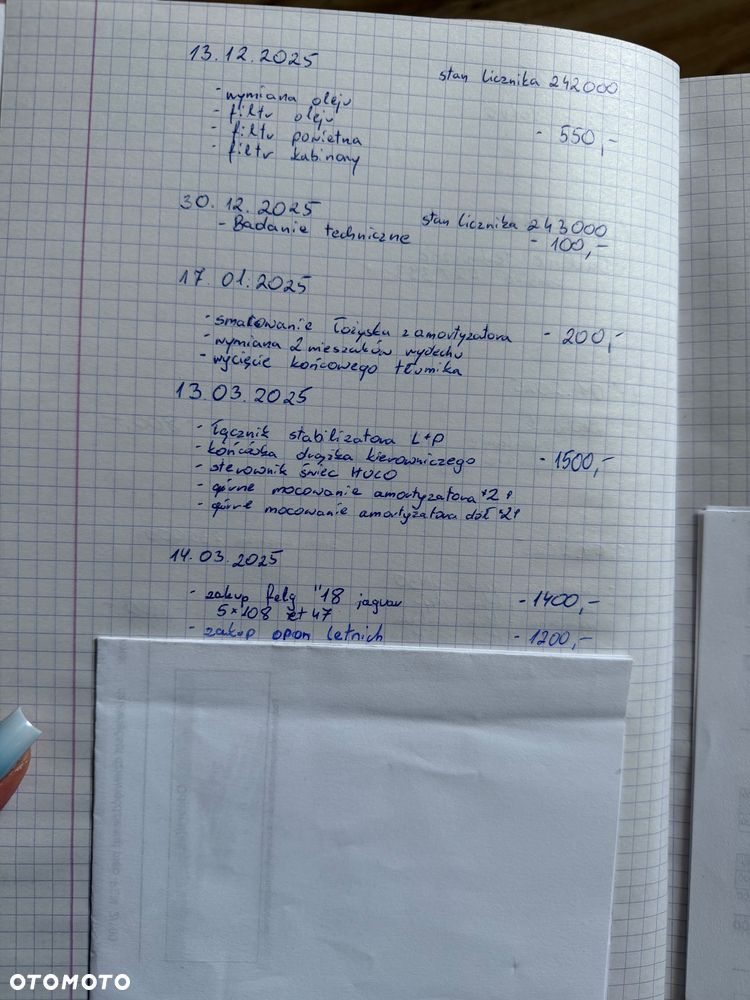 13.12.2025
stan licznika 242000
- wymiana oleju
- filtr oleju
- filtr powietrza - 550,-
- filtr kabinowy
30.12.2025
stan licznika 243000
- Badanie techniczne - 100,-
17.01.2025
- smarowanie łożyska z amortyzatora - 200,-
- wymiana 2 mieszaków wydechu
- wycięcie końcowego tłumika
13.03.2025
- łącznik stabilizatora L+P
- końcówka drążka kierowniczego - 1500,-
- sterownik świec HUCO
- górne mocowanie amortyzatora *2 P
- górne mocowanie amortyzatora dół *2P
14.03.2025
- zakup felg "18 jaguar - 1400,-
5x108 et 47
- zakup opon letnich - 1200,-
OTOMOTO